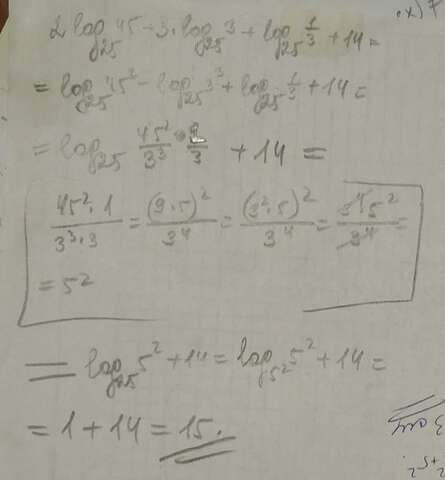 2 log₂₅ 45 - 3·log₂₅ 3 + log₂₅ 1/3 + 14 =
= log₂₅ 45² - log₂₅ 3³ + log₂₅ 1/3 + 14 =
= log₂₅ 45²/3³ · 1/3 + 14 =
45²·1/3³·3 = (9·5)²/3⁴ = (3²·5)²/3⁴ = 3⁴5²/3⁴ =
= 5²
= log₂₅ 5² + 14 = log₅² 5² + 14 =
= 1 + 14 = 15.